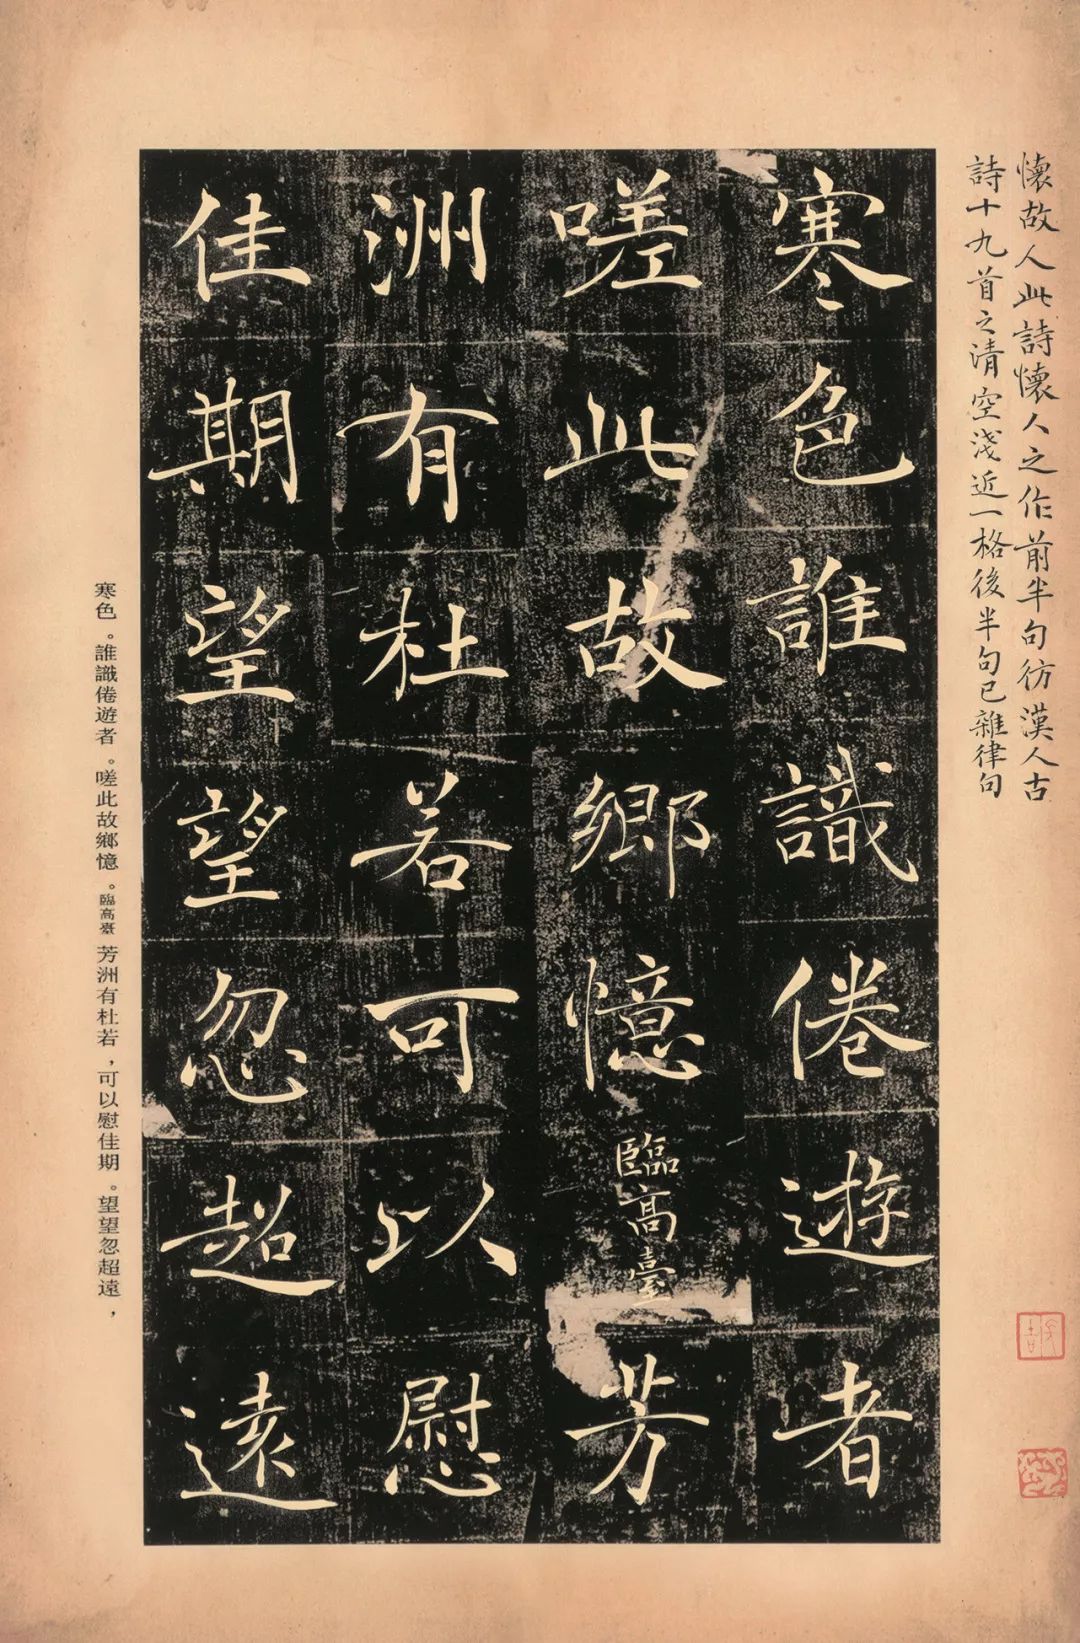 懷故人此詩懷人之作前半句彷漢人古
詩十九首之清空淺近一格後半句已雜律句
寒色誰識倦遊者
嗟此故鄉憶臨高臺芳
洲有杜若可以慰
佳期望望忽超遠
寒色。誰識倦遊者。嗟此故鄉憶。臨高臺芳洲有杜若，可以慰佳期。望望忽超遠，